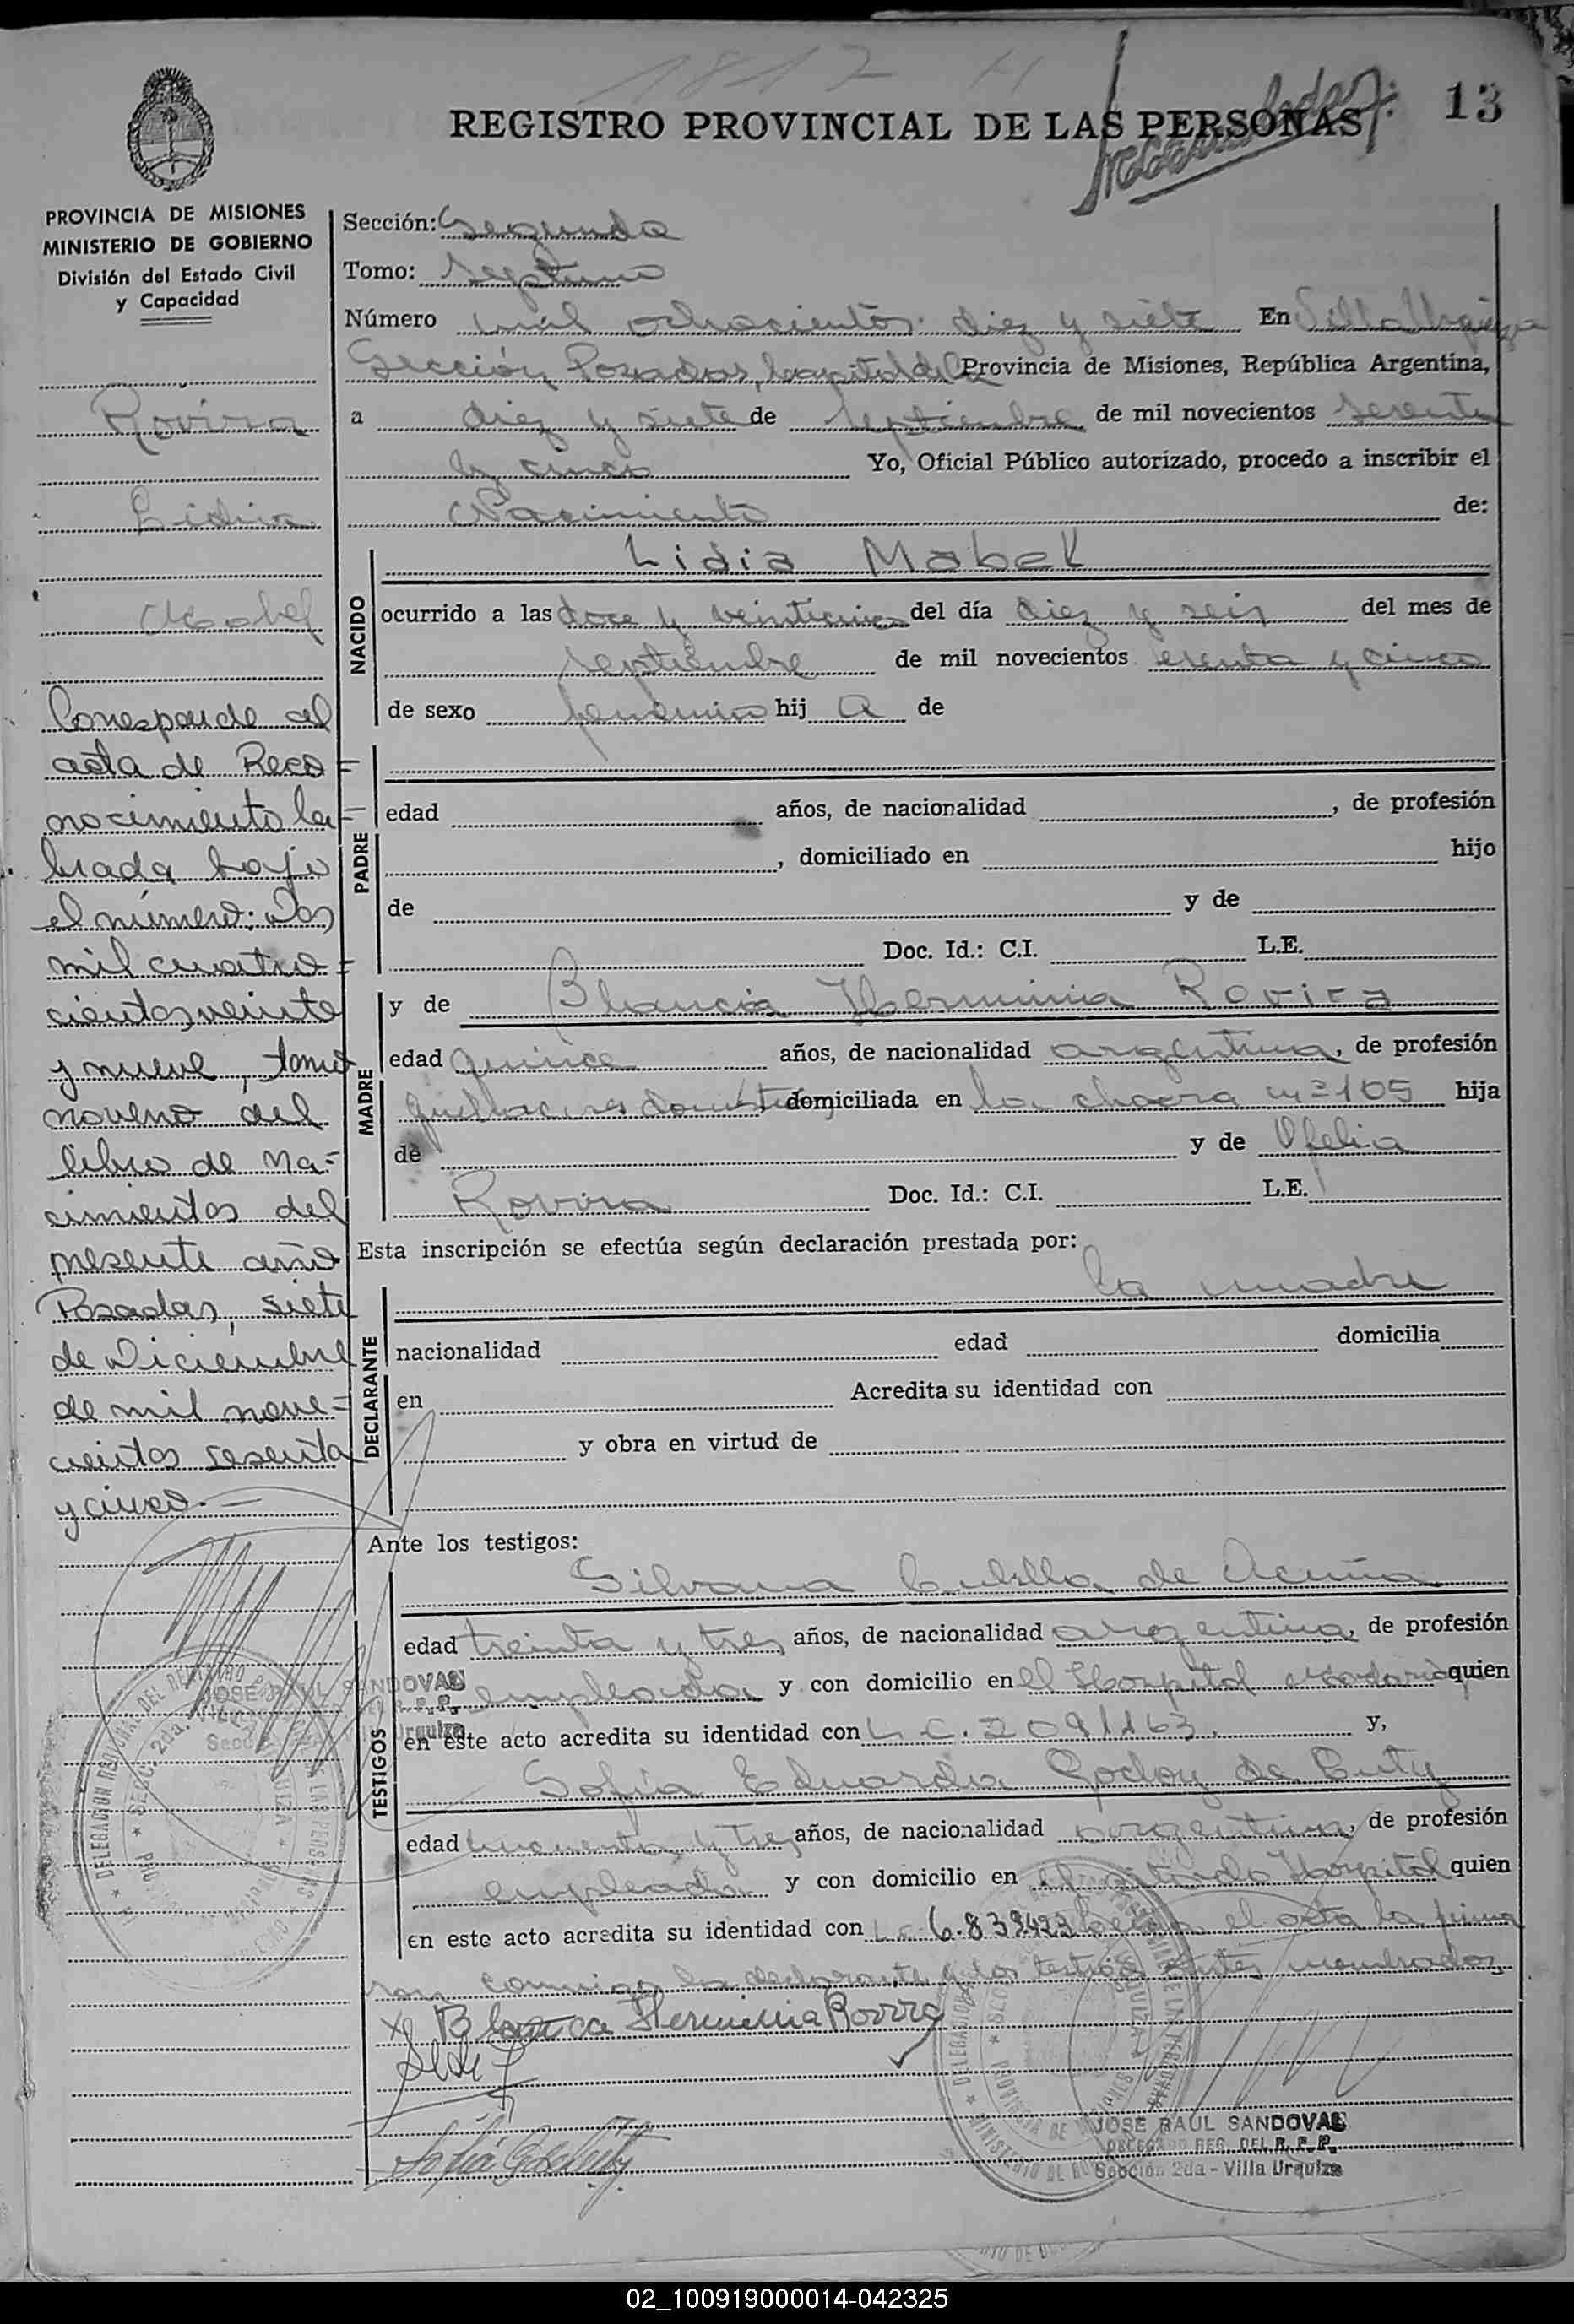 1817
REGISTRO PROVINCIAL DE LAS PERSONAS
13
PROVINCIA DE MISIONES
MINISTERIO DE GOBIERNO
División del Estado Civil
y Capacidad
Rovira
Lidia
Mabel
Corresponde al
acta de Reco=
nocimiento la=
brada bajo
el número: Dos
mil cuatro=
cientos veinte
y nueve, tomo
noveno del
libro de na=
cimientos del
presente año
Posadas, siete
de Diciembre
de mil nove=
cientos sesenta
y cinco.—
Sección: Segunda
Tomo: Septimo
Número mil ochocientos diez y siete En Villa Urquiza
Sección Posadas, capital de la Provincia de Misiones, República Argentina,
a diez y siete de septiembre de mil novecientos sesenta
y cinco Yo, Oficial Público autorizado, procedo a inscribir el
Nacimiento de:
NACIDO
Lidia Mabel
ocurrido a las doce y veinticinco del día diez y seis del mes de
septiembre de mil novecientos sesenta y cinco
de sexo femenino hij a de
PADRE
edad años, de nacionalidad , de profesión
, domiciliado en hijo
de y de
Doc. Id.: C.I. L.E.
MADRE
y de Blanca Herminia Rovira
edad quince años, de nacionalidad argentina, de profesión
quehaceres domésticos domiciliada en la chacra nº 105 hija
de y de Ofelia
Rovira Doc. Id.: C.I. L.E.
Esta inscripción se efectúa según declaración prestada por:
la madre
DECLARANTE
nacionalidad edad domicilia
en Acredita su identidad con
y obra en virtud de
Ante los testigos:
TESTIGOS
Silvana Cubilla de Acuña
edad treinta y tres años, de nacionalidad argentina, de profesión
empleada y con domicilio en el Hospital Madariaga quien
en este acto acredita su identidad con L.C. 2091163. y,
Sofia Eduarda Godoy de Cuty
edad cincuenta y tres años, de nacionalidad argentina, de profesión
empleada y con domicilio en el citado Hospital quien
en este acto acredita su identidad con L.C. 6.839423 el acta la firma
ron conmigo la declarante y los testigos antes nombrados
x Blanca Herminia Rovira
JOSE RAUL SANDOVAL
DELEGADO REG. DEL R.P.P.
Sección 2da - Villa Urquiza
02_100919000014-042325